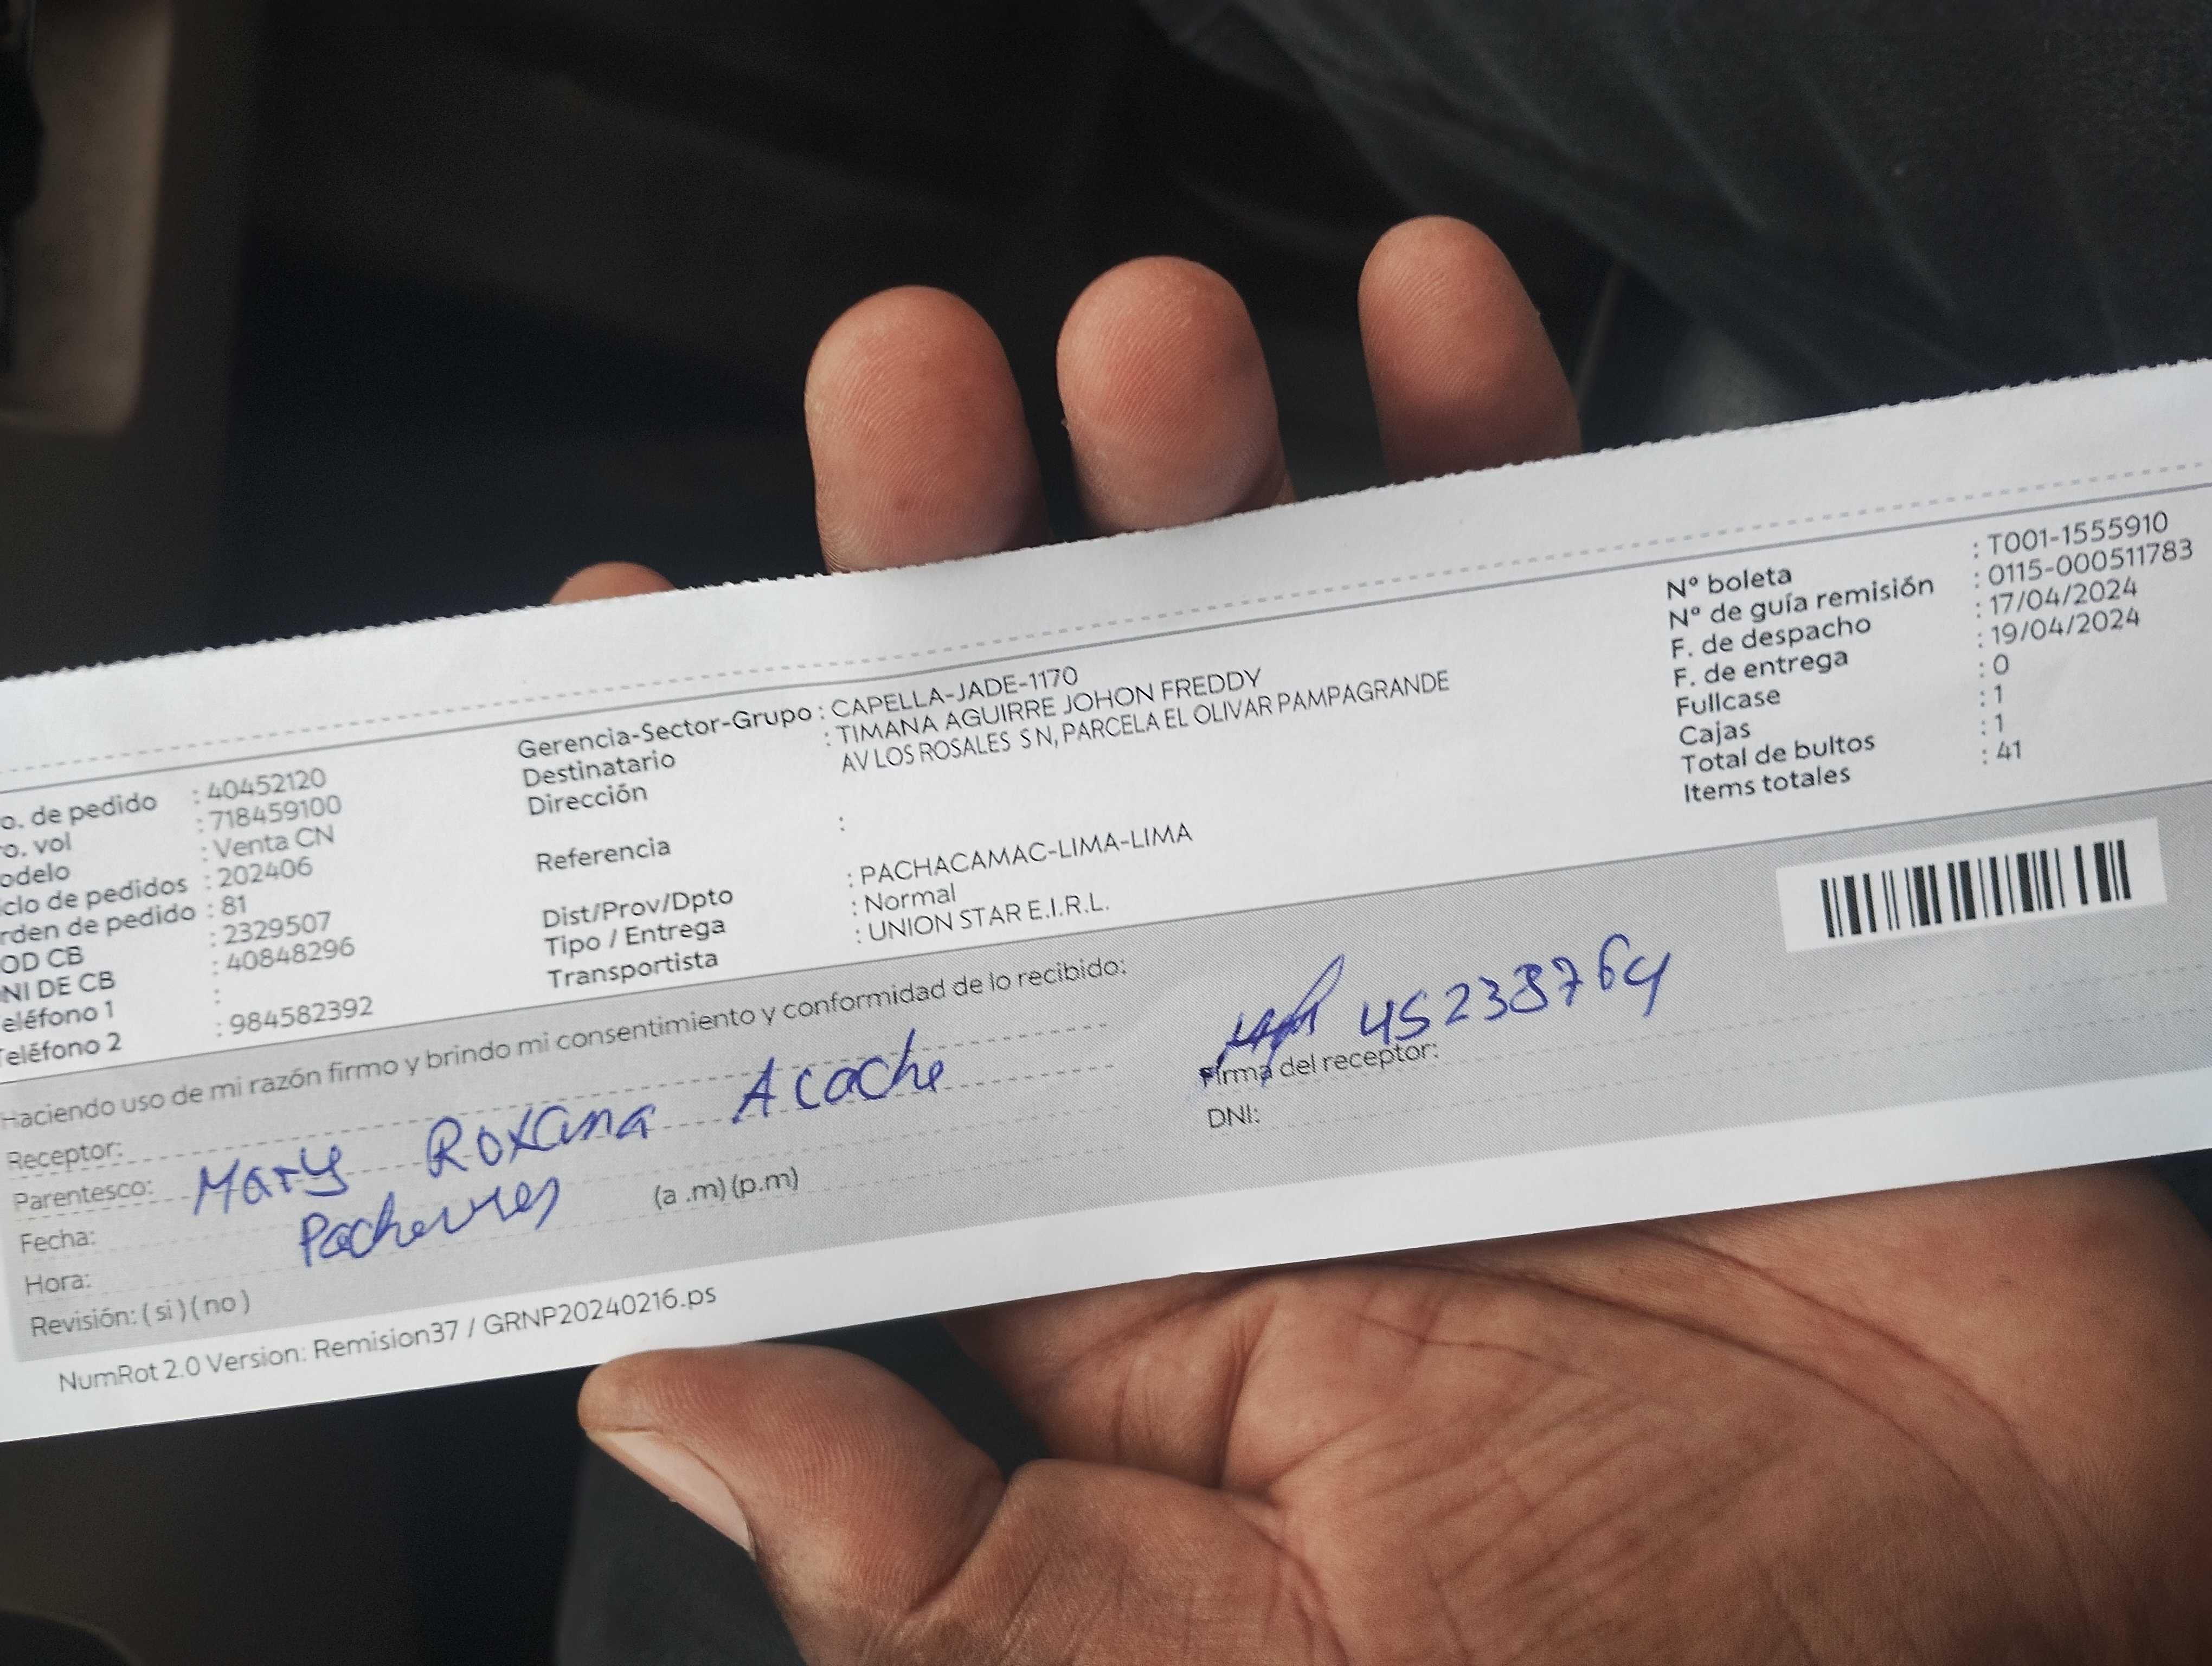 o. de pedido : 40452120
ro. vol : 718459100
odelo : Venta CN
clo de pedidos : 202406
rden de pedido : 81
OD CB : 2329507
NI DE CB : 40848296
eléfono 1 :
Teléfono 2 : 984582392
Gerencia-Sector-Grupo : CAPELLA-JADE-1170
Destinatario : TIMANA AGUIRRE JOHON FREDDY
Dirección AV LOS ROSALES S N, PARCELA EL OLIVAR PAMPAGRANDE
Referencia :
Dist/Prov/Dpto : PACHACAMAC-LIMA-LIMA
Tipo / Entrega : Normal
Transportista : UNION STAR E.I.R.L.
Nº boleta : T001-1555910
Nº de guía remisión : 0115-000511783
F. de despacho : 17/04/2024
F. de entrega : 19/04/2024
Fullcase : 0
Cajas : 1
Total de bultos : 1
Items totales : 41
Haciendo uso de mi razón firmo y brindo mi consentimiento y conformidad de lo recibido:
Receptor:
Parentesco: Mary Roxana Acache
Fecha:
Hora: (a .m) (p.m)
Revisión: ( si ) ( no )
45238764
Firma del receptor:
DNI:
NumRot 2.0 Version: Remision37 / GRNP20240216.ps